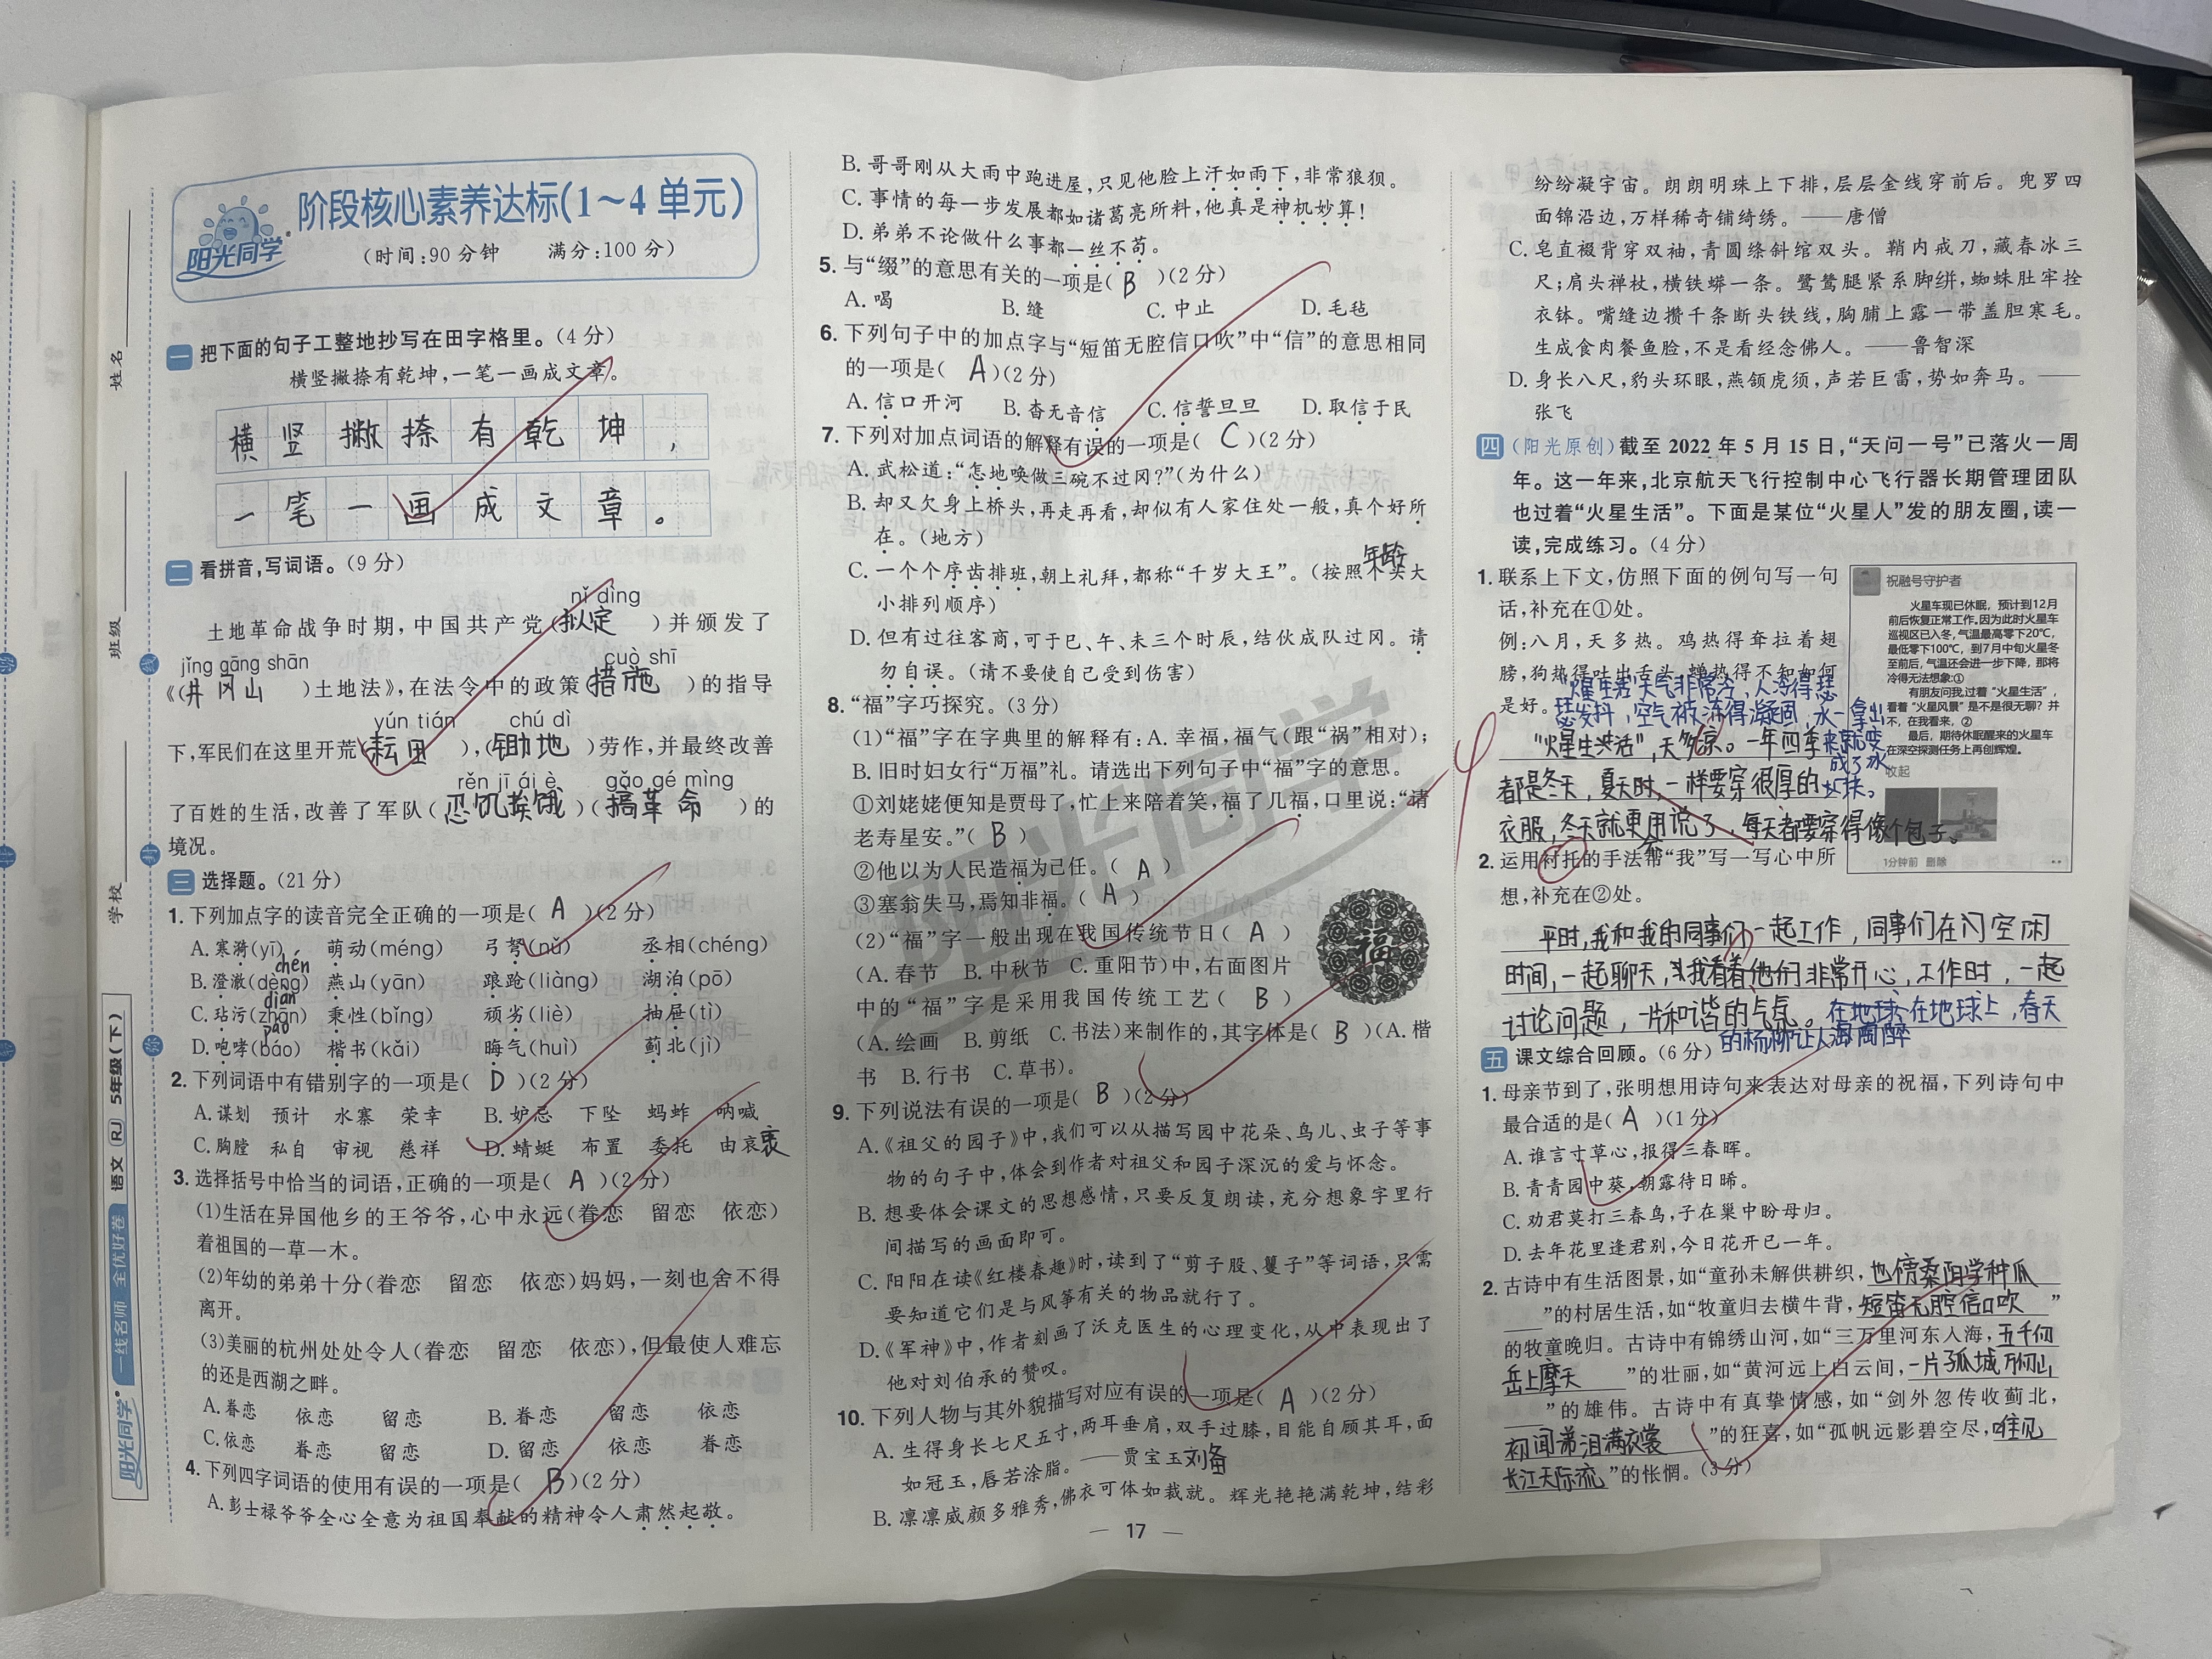 阶段核心素养达标(1～4单元)
阳光同学
(时间:90分钟 满分:100分)
姓名
班级
学校
线
封
你
语文 RJ 5年级(下)
一线名师 全优好卷
阳光同学
一 把下面的句子工整地抄写在田字格里。(4分)
横竖撇捺有乾坤,一笔一画成文章。
横竖撇捺有乾坤,
一笔一画成文章。
二 看拼音,写词语。(9分)
nǐ dìng
土地革命战争时期,中国共产党(拟定)并颁发了
jǐng gāng shān cuò shī
《(井冈山)土地法》,在法令中的政策(措施)的指导
yún tián chú dì
下,军民们在这里开荒(耘田),(锄地)劳作,并最终改善
rěn jī ái è gǎo gé mìng
了百姓的生活,改善了军队(忍饥挨饿)(搞革命)的
境况。
三 选择题。(21分)
1. 下列加点字的读音完全正确的一项是(A)(2分)
A. 寒漪(yī) 萌动(méng) 弓弩(nǔ) 丞相(chéng)
chén
B. 澄澈(dèng) 燕山(yān) 踉跄(liàng) 湖泊(pō)
diàn
C. 玷污(zhān) 秉性(bǐng) 顽劣(liè) 抽屉(tì)
páo
D. 咆哮(báo) 楷书(kǎi) 晦气(huì) 蓟北(jì)
2. 下列词语中有错别字的一项是(D)(2分)
A. 谋划 预计 水寨 荣幸 B. 妒忌 下坠 蚂蚱 呐喊
C. 胸膛 私自 审视 慈祥 D. 蜻蜓 布置 委托 由哀衷
3. 选择括号中恰当的词语,正确的一项是(A)(2分)
(1)生活在异国他乡的王爷爷,心中永远(眷恋 留恋 依恋)
着祖国的一草一木。
(2)年幼的弟弟十分(眷恋 留恋 依恋)妈妈,一刻也舍不得
离开。
(3)美丽的杭州处处令人(眷恋 留恋 依恋),但最使人难忘
的还是西湖之畔。
A. 眷恋 依恋 留恋 B. 眷恋 留恋 依恋
C. 依恋 眷恋 留恋 D. 留恋 依恋 眷恋
4. 下列四字词语的使用有误的一项是(B)(2分)
A. 彭士禄爷爷全心全意为祖国奉献的精神令人肃然起敬。
B. 哥哥刚从大雨中跑进屋,只见他脸上汗如雨下,非常狼狈。
C. 事情的每一步发展都如诸葛亮所料,他真是神机妙算!
D. 弟弟不论做什么事都一丝不苟。
5. 与“缀”的意思有关的一项是(B)(2分)
A. 喝 B. 缝 C. 中止 D. 毛毡
6. 下列句子中的加点字与“短笛无腔信口吹”中“信”的意思相同
的一项是(A)(2分)
A. 信口开河 B. 杳无音信 C. 信誓旦旦 D. 取信于民
7. 下列对加点词语的解释有误的一项是(C)(2分)
A. 武松道:“怎地唤做三碗不过冈?”(为什么)
B. 却又欠身上桥头,再走再看,却似有人家住处一般,真个好所
在。(地方)
年龄
C. 一个个序齿排班,朝上礼拜,都称“千岁大王”。(按照个头大
小排列顺序)
D. 但有过往客商,可于巳、午、未三个时辰,结伙成队过冈。请
勿自误。(请不要使自己受到伤害)
8. “福”字巧探究。(3分)
(1)“福”字在字典里的解释有:A. 幸福,福气(跟“祸”相对);
B. 旧时妇女行“万福”礼。请选出下列句子中“福”字的意思。
①刘姥姥便知是贾母了,忙上来陪着笑,福了几福,口里说:“请
老寿星安。”(B)
②他以为人民造福为己任。(A)
③塞翁失马,焉知非福。(A)
(2)“福”字一般出现在我国传统节日(A)
(A. 春节 B. 中秋节 C. 重阳节)中,右面图片
中的“福”字是采用我国传统工艺(B)
(A. 绘画 B. 剪纸 C. 书法)来制作的,其字体是(B)(A. 楷
书 B. 行书 C. 草书)。
福
9. 下列说法有误的一项是(B)(2分)
A.《祖父的园子》中,我们可以从描写园中花朵、鸟儿、虫子等事
物的句子中,体会到作者对祖父和园子深沉的爱与怀念。
B. 想要体会课文的思想感情,只要反复朗读,充分想象字里行
间描写的画面即可。
C. 阳阳在读《红楼春趣》时,读到了“剪子股、籰子”等词语,只需
要知道它们是与风筝有关的物品就行了。
D.《军神》中,作者刻画了沃克医生的心理变化,从中表现出了
他对刘伯承的赞叹。
10. 下列人物与其外貌描写对应有误的一项是(A)(2分)
A. 生得身长七尺五寸,两耳垂肩,双手过膝,目能自顾其耳,面
如冠玉,唇若涂脂。——贾宝玉刘备
B. 凛凛威颜多雅秀,佛衣可体如裁就。辉光艳艳满乾坤,结彩
— 17 —
纷纷凝宇宙。朗朗明珠上下排,层层金线穿前后。兜罗四
面锦沿边,万样稀奇铺绮绣。——唐僧
C. 皂直裰背穿双袖,青圆绦斜绾双头。鞘内戒刀,藏春冰三
尺;肩头禅杖,横铁蟒一条。鹭鸶腿紧系脚絣,蜘蛛肚牢拴
衣钵。嘴缝边攒千条断头铁线,胸脯上露一带盖胆寒毛。
生成食肉餐鱼脸,不是看经念佛人。——鲁智深
D. 身长八尺,豹头环眼,燕颔虎须,声若巨雷,势如奔马。——
张飞
四 (阳光原创)截至2022年5月15日,“天问一号”已落火一周
年。这一年来,北京航天飞行控制中心飞行器长期管理团队
也过着“火星生活”。下面是某位“火星人”发的朋友圈,读一
读,完成练习。(4分)
1. 联系上下文,仿照下面的例句写一句
话,补充在①处。
例:八月,天多热。鸡热得耷拉着翅
膀,狗热得吐出舌头,蝉热得不知如何
是好。
“火星生活”天气非常冷,人冷得瑟
瑟发抖,空气被冻得凝固,水一拿出
来就变
成了冰
块。
“火星生活”,天多凉。一年四季
都是冬天,夏天时,一样要穿很厚的
衣服,冬天就更用说了,每天都要穿得像个包子。
祝融号守护者
火星车现已休眠,预计到12月
前后恢复正常工作。因为此时火星车
巡视区已入冬,气温最高零下20℃,
最低零下100℃,到7月中旬火星冬
至前后,气温还会进一步下降,那将
冷得无法想象:①
有朋友问我,过着“火星生活”,
看着“火星风景”是不是很无聊?并
不,在我看来,②
最后,期待休眠醒来的火星车
在深空探测任务上再创辉煌。
收起
1分钟前 删除
2. 运用衬托的手法帮“我”写一写心中所
想,补充在②处。
平时,我和我的同事们一起工作,同事们在闪空闲
时间,一起聊天,我看着他们非常开心,工作时,一起
讨论问题,一片和谐的气氛。在地球在地球上,春天
的杨柳让人陶醉
五 课文综合回顾。(6分)
1. 母亲节到了,张明想用诗句来表达对母亲的祝福,下列诗句中
最合适的是(A)(1分)
A. 谁言寸草心,报得三春晖。
B. 青青园中葵,朝露待日晞。
C. 劝君莫打三春鸟,子在巢中盼母归。
D. 去年花里逢君别,今日花开已一年。
2. 古诗中有生活图景,如“童孙未解供耕织,也傍桑阴学种瓜
”的村居生活,如“牧童归去横牛背,短笛无腔信口吹”
的牧童晚归。古诗中有锦绣山河,如“三万里河东入海,五千仞
岳上摩天”的壮丽,如“黄河远上白云间,一片孤城万仞山
”的雄伟。古诗中有真挚情感,如“剑外忽传收蓟北,
初闻涕泪满衣裳”的狂喜,如“孤帆远影碧空尽,唯见
长江天际流”的怅惘。(3分)